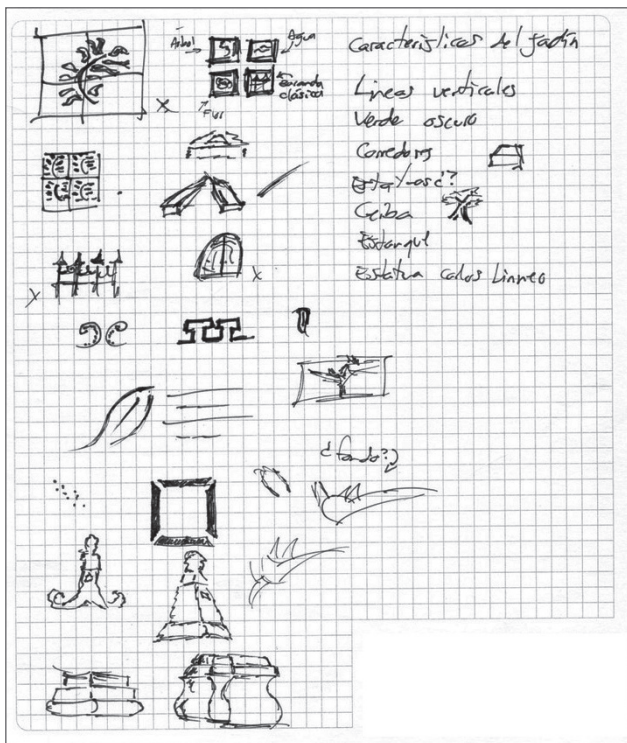 Arbol
Agua
Baranda
clásica
Flor
Características del Jardín
Lineas verticales
Verde oscuro
Corredores
Ceiba
Estanque
Estatua Carlos Linneo
¿fondo?